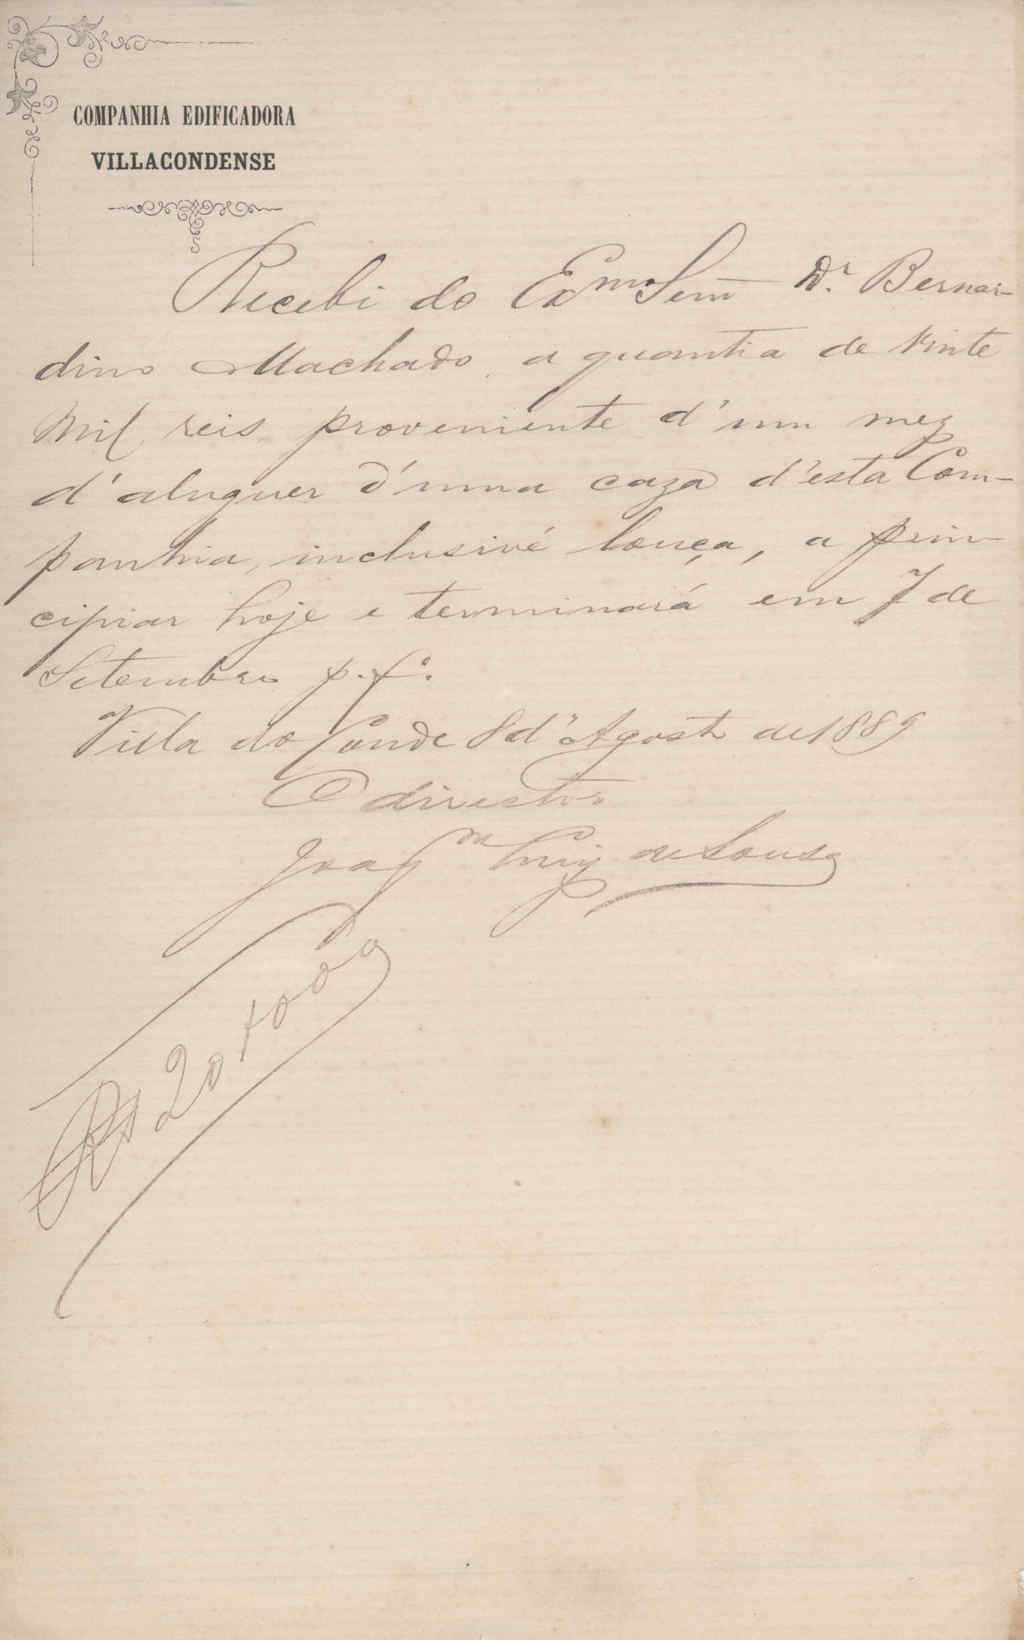 COMPANHIA EDIFICADORA
VILLACONDENSE
Recebi do Exmo Senr Dr. Bernar-
dino Machado, a quantia de Vinte
mil reis proveniente d'um mez
d'aluguer d'uma caza d'esta Com-
panhia, inclusivé louça, a prin-
cipiar hoje e terminará em 7 de
Setembro p. fo.
Villa do Conde 8 d'Agosto de 1889
O director
Joaqm Luiz de Sousa
Rs 20$000